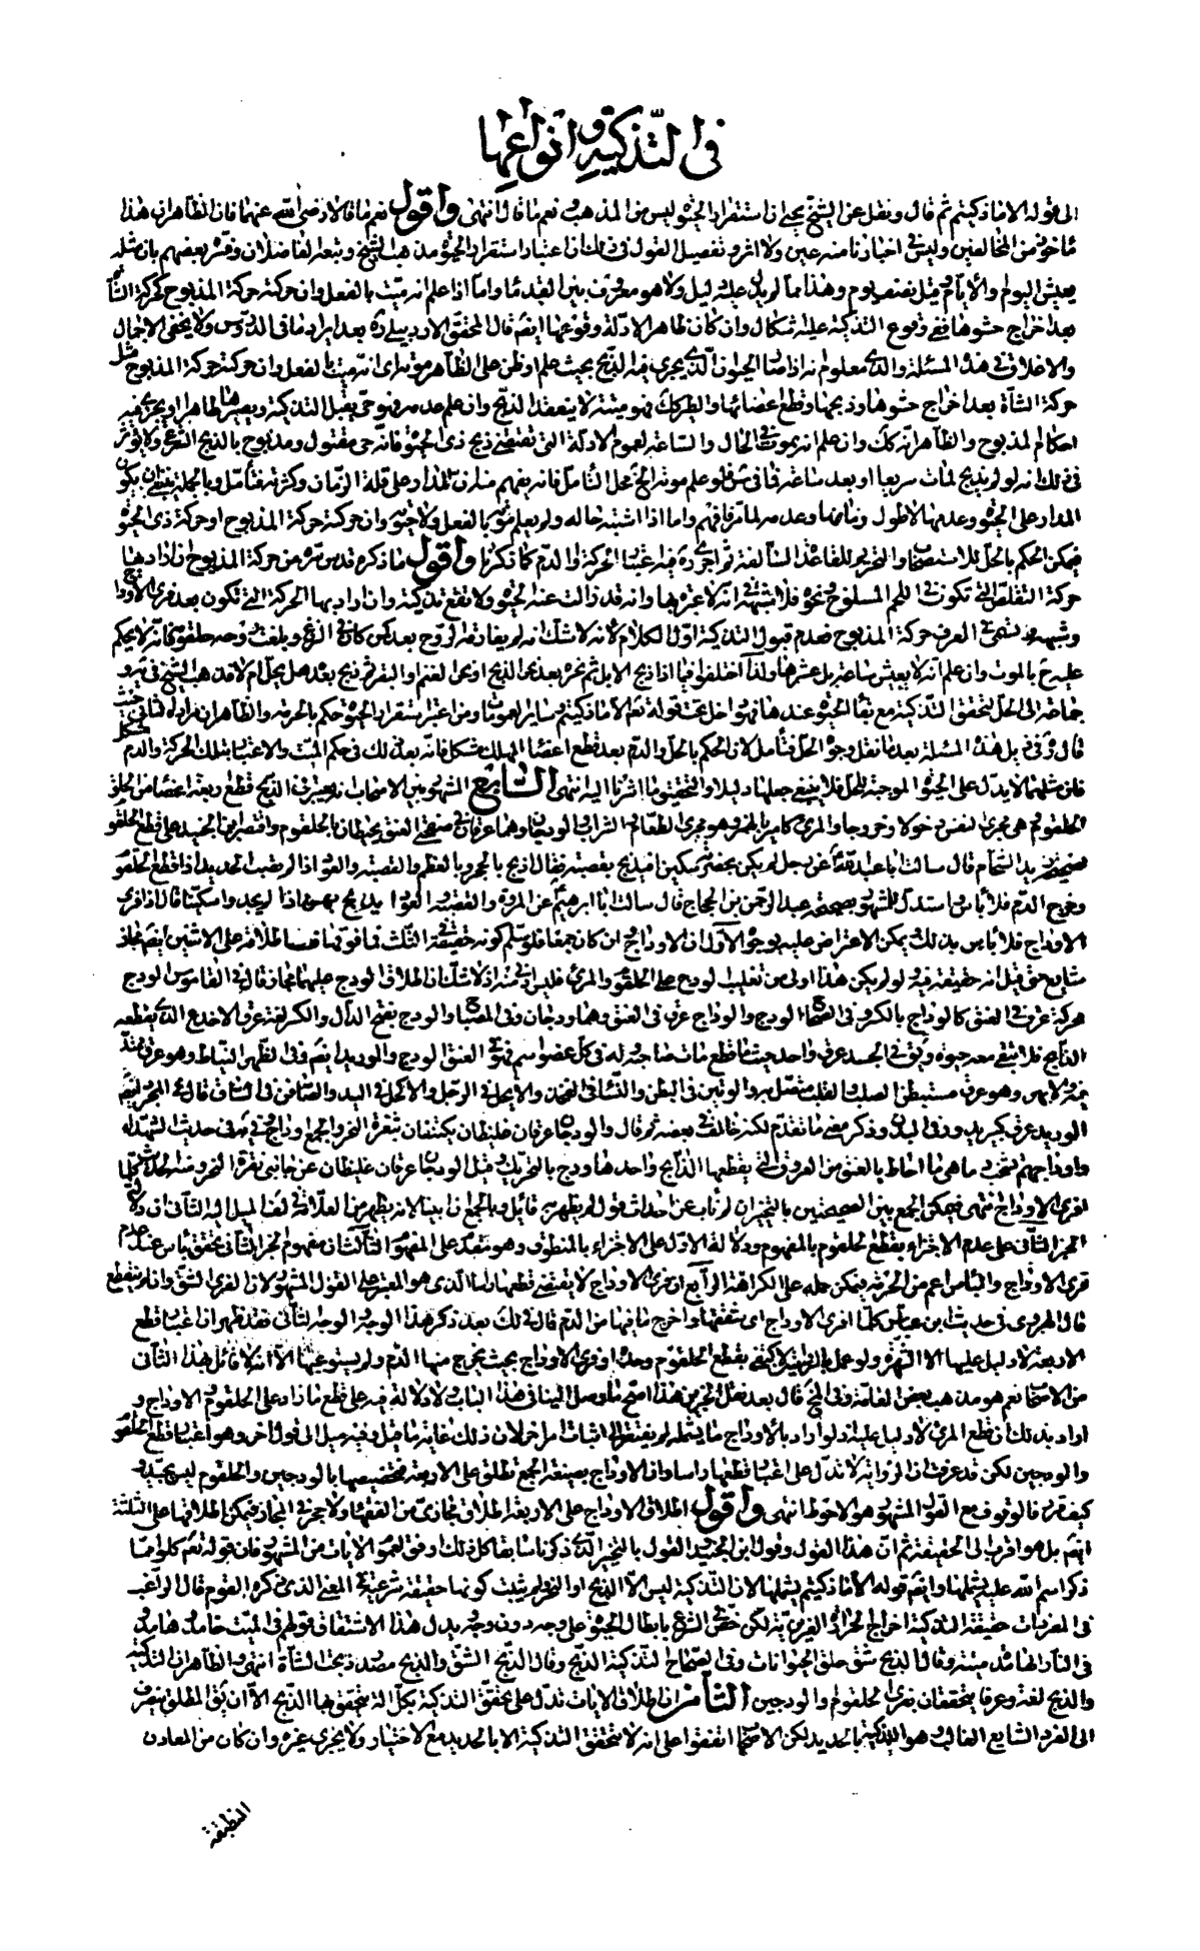 في التذكية وانواعها
الى قوله الا ما ذكيتم ثم قال ونقل عن الشيخ يحيى ان استقرار الحيوة ليس من المذهب ونعم ما قال انتهى واقول نعم ما قالا رضي الله عنهما فان الظاهر ان هذا
مأخوذ من المخالفين وليس في اخبارنا منه عين ولا اثر وتفصيل القول في ذلك ان اعتبار استقرار الحيوة مذهب الشيخ وتبعه الفاضلان وفسره بعضهم بان مثله
يعيش اليوم والايام وقيل نصف يوم وهذا مما لم يدل عليه دليل ولا هو معروف بين القدماء واما اذا علم انه ميت بالفعل وان حركته حركة المذبوح كحركة الشاة
بعد اخراج حشوها ففي وقوع التذكية عليه اشكال وان كان ظاهر الادلة وقوعها ايضا قال المحقق الاردبيلي ره بعد ايراد ما في الدروس ولا يخفى الاجمال
والاغلاق في هذه المسئلة والذي معلوم انه اذا صار الحيوان الذي يجري فيه الذبح بحيث علم او ظن على الظاهر موته اي انه ميت بالفعل وان حركته حركة المذبوح مثل
حركة الشاة بعد اخراج حشوها وذبحها وقطع اعضائها والطير كذلك فهو ميتة لا ينفعه الذبح وان علم عدمه فهو حي يقبل التذكية ويصير بها طاهرا ويجري فيه
احكام المذبوح والظاهر انه كذلك وان علم انه يموت في الحال والساعة لعموم الادلة التي تقتضي ذبح ذي الحيوة فانه حي مقتول ومذبوح بالذبح الشرعي ولا يؤثر
في ذلك انه لو لم يذبح لمات سريعا او بعد ساعة فما في س فلو علم موته الخ محل التأمل فانه يفهم منه ان المدار على قلة الزمان وكثرته فتأمل وبالجملة ينبغي ان يكون
المدار على الحيوة وعدمها لا طول زمانها وعدمه لما مر فافهم واما اذا اشتبه حاله ولم يعلم موته بالفعل ولا حيوته وان حركته حركة المذبوح او حركة ذي الحيوة
فيمكن الحكم بالحل للاستصحاب والتحريم للقاعدة السالفة ثم اجراءه فيه اعتبار الحركة والدم كما ذكرنا واقول ما ذكره قدس سره من حركة المذبوح ان اراد بها
حركة التقلص التي تكون في اللحم المسلوخ ونحوه فلا شبهة في انه لا عبرة بها وانه قد زالت عنه الحيوة ولا تقع تذكيته وان اراد بها الحركة التي تكون بعد فري الاوداج
وشبهه وتسمى في العرف حركة المذبوح فعدم قبول التذكية اول الكلام لانه لا شك انه لم يفارقه الروح بعد كمن كان في النزع وبلغت روحه حلقومه فانه لا يحكم
عليه ح بالموت وان علم انه لا يعيش ساعة بل عشرها ولذا اختلفوا فيما اذا ذبح الابل ثم نحره بعد الذبح او نحر الغنم والبقر ثم ذبح بعده هل يحل ام لا فذهب الشيخ في يه و
جماعة الى الحل لتحقق التذكية مع بقاء الحيوة عندها فهو داخل تحت قوله تعالى الا ما ذكيتم وساير العمومات ومن اعتبر استقرار الحيوة حكم بالحرمة والظاهر ان مراده الثاني حيث
قال ره في ذيل هذه المسئلة بعد ما نقل وجوه الحل فتأمل لان الحكم بالحل والدم بعد قطع اعضاء المهلك مشكل فانه بعد ذلك في حكم الميت والاعتبار بتلك الحركة والدم مشكل
فان مثلهما لا يدل على الحيوة الموجبة للحل فلا ينبغي جعلها دليلا والتحقيق ما اشرنا اليه انتهى السابع المشهور بين الاصحاب انه يعتبر في الذبح قطع اربعة اعضاء من الحلق
الحلقوم هي مجرى النفس دخولا وخروجا والمريء كامير بالهمز وهو مجرى الطعام والشراب والودجان وهما عرقان في صفحتي العنق يحيطان بالحلقوم واقتصر ابن الجنيد على قطع الحلقوم
لصحيحة زيد الشحام قال سألت ابا عبد الله ع عن رجل لم يكن بحضرته سكين ايذبح بقصبة فقال اذبح بالحجر وبالعظم والقصبة والعود اذا لم تصب الحديد اذا قطع الحلقوم
وخرج الدم فلا بأس واستدل للمشهور بصحيحة عبد الرحمن بن الحجاج قال سألت ابا ابراهيم ع عن المروة والقصبة والعود يذبح بهن اذا لم يجدوا سكينا قال اذا فري
الاوداج فلا بأس بذلك ويمكن الاعتراض عليه بوجوه الاول ان الاوداج وان كان جمعا فلو سلم كونه حقيقة في الثلث فما فوقها فاطلاقه على الاثنين ايضا مجاز
شايع حتى قيل انه حقيقة فيه ولو لم يكن هذا اولى من تغليب الودج على الحلقوم والمريء فليس ادنى منه اذ لا شك ان اطلاق الودج عليهما مجاز قال في القاموس الودج
محركة عرق في العنق كالوداج بالكسر وفي الصحاح الودج والوداج عرق في العنق وهما ودجان وفي المصباح الودج بفتح الدال والكسر لغة عرق الاخدع الذي يقطعه
الذابح فلا يبقى معه حيوة ويق في الجسد عرق واحد حيثما قطع مات صاحبه له في كل عضو اسم فهو في العنق الودج والوريد ايضا وفي الظهر النياط وهو عرق ممتد
فيه والابهر وهو عرق مستبطن الصلب والقلب متصل به والوتين في البطن والنسا في الفخذ والابجل في الرجل والاكحل في اليد والصافن في الساق قال في المجرد ايضا
الوريد عرق كبير يدور في البدن وذكر معنى ما تقدم لكنه خالف في بعضه ثم قال والودجان عرقان غليظان يكتنفان ثغرة النحر والجمع اوداج في يه في حديث الشهداء
واوداجهم تشخب دما هي ما احاط بالعنق من العروق التي يقطعها الذابح واحدها ودج بالتحريك وقيل الودجان عرقان غليظان عن جانبي نقرة النحر ومنه الحديث كلما
افرى الاوداج انتهى فيمكن الجمع بين الصحيحتين بالتخيير ان لم ناب عن احداث قول لم يظهر به قائل وبالجمع ذاهبنا لانه يظهر من العلامة في لف الميل اليه الثاني ان دلالة
الخبر الثاني على عدم الاجزاء بقطع الحلقوم بالمفهوم ودلالة الاول على الاجزاء بالمنطوق وهو مقدم على المفهوم الثالث ان مفهوم الخبر الثاني تحقق بأس عند عدم
فري الاوداج والبأس اعم من الحرمة فيمكن حمله على الكراهة الرابع ان فري الاوداج لا يقتضي قطعها راسا الذي هو المعتبر على القول المشهور لان الفري الشق وان لم ينقطع
قال الهروي في حديث ابن عباس كلما افرى الاوداج اي شققها واخرج ما فيها من الدم قال في لك بعد ذكر هذا الوجه والوجه الثاني فقد ظهر ان اعتبار قطع
الاربعة لا دليل عليه الا الشهرة ولو عمل بالروايتين لاكتفي بقطع الحلقوم وحده او فري الاوداج بحيث يخرج منها الدم ولم يستوعبها الا انه لا قائل بهذا الثاني
من الاصحاب نعم هو مذهب بعض العامة وفي لف قال بعد نقل الخبرين هذا اصح ما وصل الينا في هذا الباب ولا دلالة فيه على قطع ما زاد على الحلقوم والاوداج و
اراد بذلك ان قطع المريء لا دليل عليه اذ لو اراد بالاوداج ما يشمله لم يفتقر الى اثبات امر اخر لان ذلك غاية ما قيل وفيه ميل الى قول اخر وهو اعتبار قطع الحلقوم
والودجين لكن قد عرفت ان الرواية لا تدل على اعتبار قطعها راسا وان الاوداج بصيغة الجمع تطلق على الاربعة فتخصيصها بالودجين والحلقوم ليس بجيد و
كيف كان فالوقوف مع القول المشهور هو الاحوط انتهى واقول اطلاق الاوداج على الاربعة اطلاق مجازي من الفقهاء ولا حجر في المجاز ويمكن اطلاقها على الثلثة
ايضا بل هو اقرب الى الحقيقة ثم ان هذا القول وقول ابن الجنيد والقول بالتخيير الذي ذكرنا سابقا كل ذلك اوفق لعموم الايات من المشهور فان قوله تعالى كلوا مما
ذكر اسم الله عليه يشملها وايضا قوله الا ما ذكيتم يشملها لان التذكية ليس الا الذبح او النحر ولم يثبت كونها حقيقة شرعية في المعنى الذي ذكره القوم قال الراغب
في المفردات حقيقة التذكية اخراج الحرارة الغريزية لكن خص في الشرع بابطال الحيوة على وجه دون وجه ويدل هذا الاشتقاق قولهم في الميت خامد هامد
في النار الهامدة ميتة وقال الذبح شق حلق الحيوانات وفي الصحاح التذكية الذبح وقال الذبح الشق والذبح مصدر ذبحت الشاة انتهى والظاهر ان التذكية
والذبح لغة وعرفا يتحققان بفري الحلقوم والودجين الثامن ان اطلاق الايات تدل على تحقق التذكية بكل آلة يتحقق بها الذبح الا ان يق المطلق ينصرف
الى الفرد الشايع الغالب وهو التذكية بالحديد لكن الاصحاب اتفقوا على انه لا تتحقق التذكية الا بالحديد مع الاختيار ولا يجزي غيره وان كان من المعادن
المنطبقة